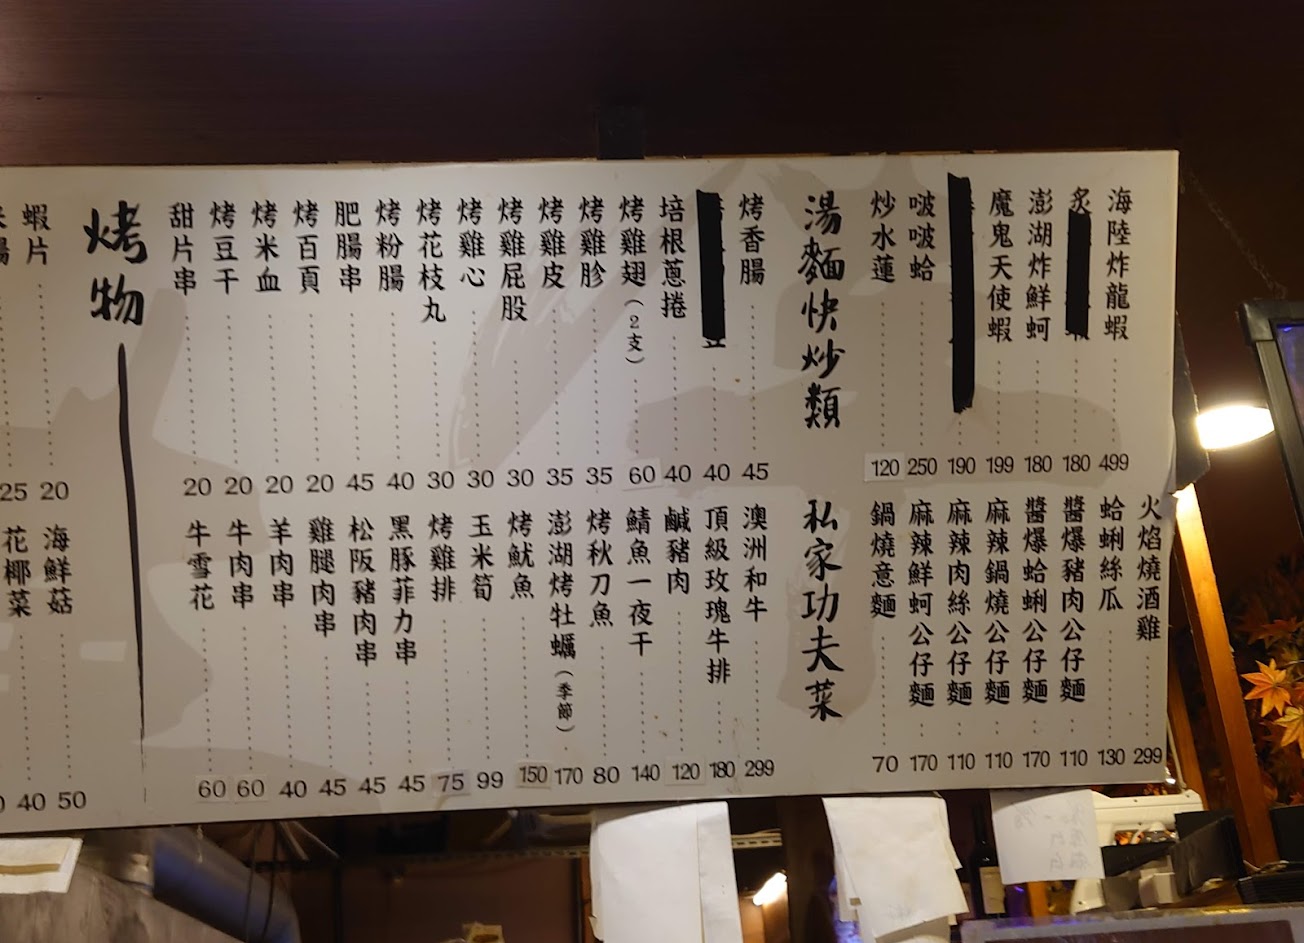 海陸炸龍蝦 499
炙 蝦 180
澎湖炸鮮蚵 180
魔鬼天使蝦 199
190
啵啵蛤 250
炒水蓮 120
火焰燒酒雞 299
蛤蜊絲瓜 130
醬爆豬肉公仔麵 110
醬爆蛤蜊公仔麵 170
麻辣鍋燒公仔麵 110
麻辣肉絲公仔麵 110
麻辣鮮蚵公仔麵 170
鍋燒意麵 70
湯麵快炒類
私家功夫菜
烤香腸 45
40
培根蔥捲 40
烤雞翅(2支) 60
烤雞胗 35
烤雞皮 35
烤雞屁股 30
烤雞心 30
烤花枝丸 30
烤粉腸 40
肥腸串 45
烤百頁 20
烤米血 20
烤豆干 20
甜片串 20
澳洲和牛 299
頂級玫瑰牛排 180
鹹豬肉 120
鯖魚一夜干 140
烤秋刀魚 80
澎湖烤牡蠣(季節) 170
烤魷魚 150
玉米筍 99
烤雞排 75
黑豚菲力串 45
松阪豬肉串 45
雞腿肉串 45
羊肉串 40
牛肉串 60
牛雪花 60
烤物
蝦片 20
腸 25
海鮮菇 50
花椰菜 40